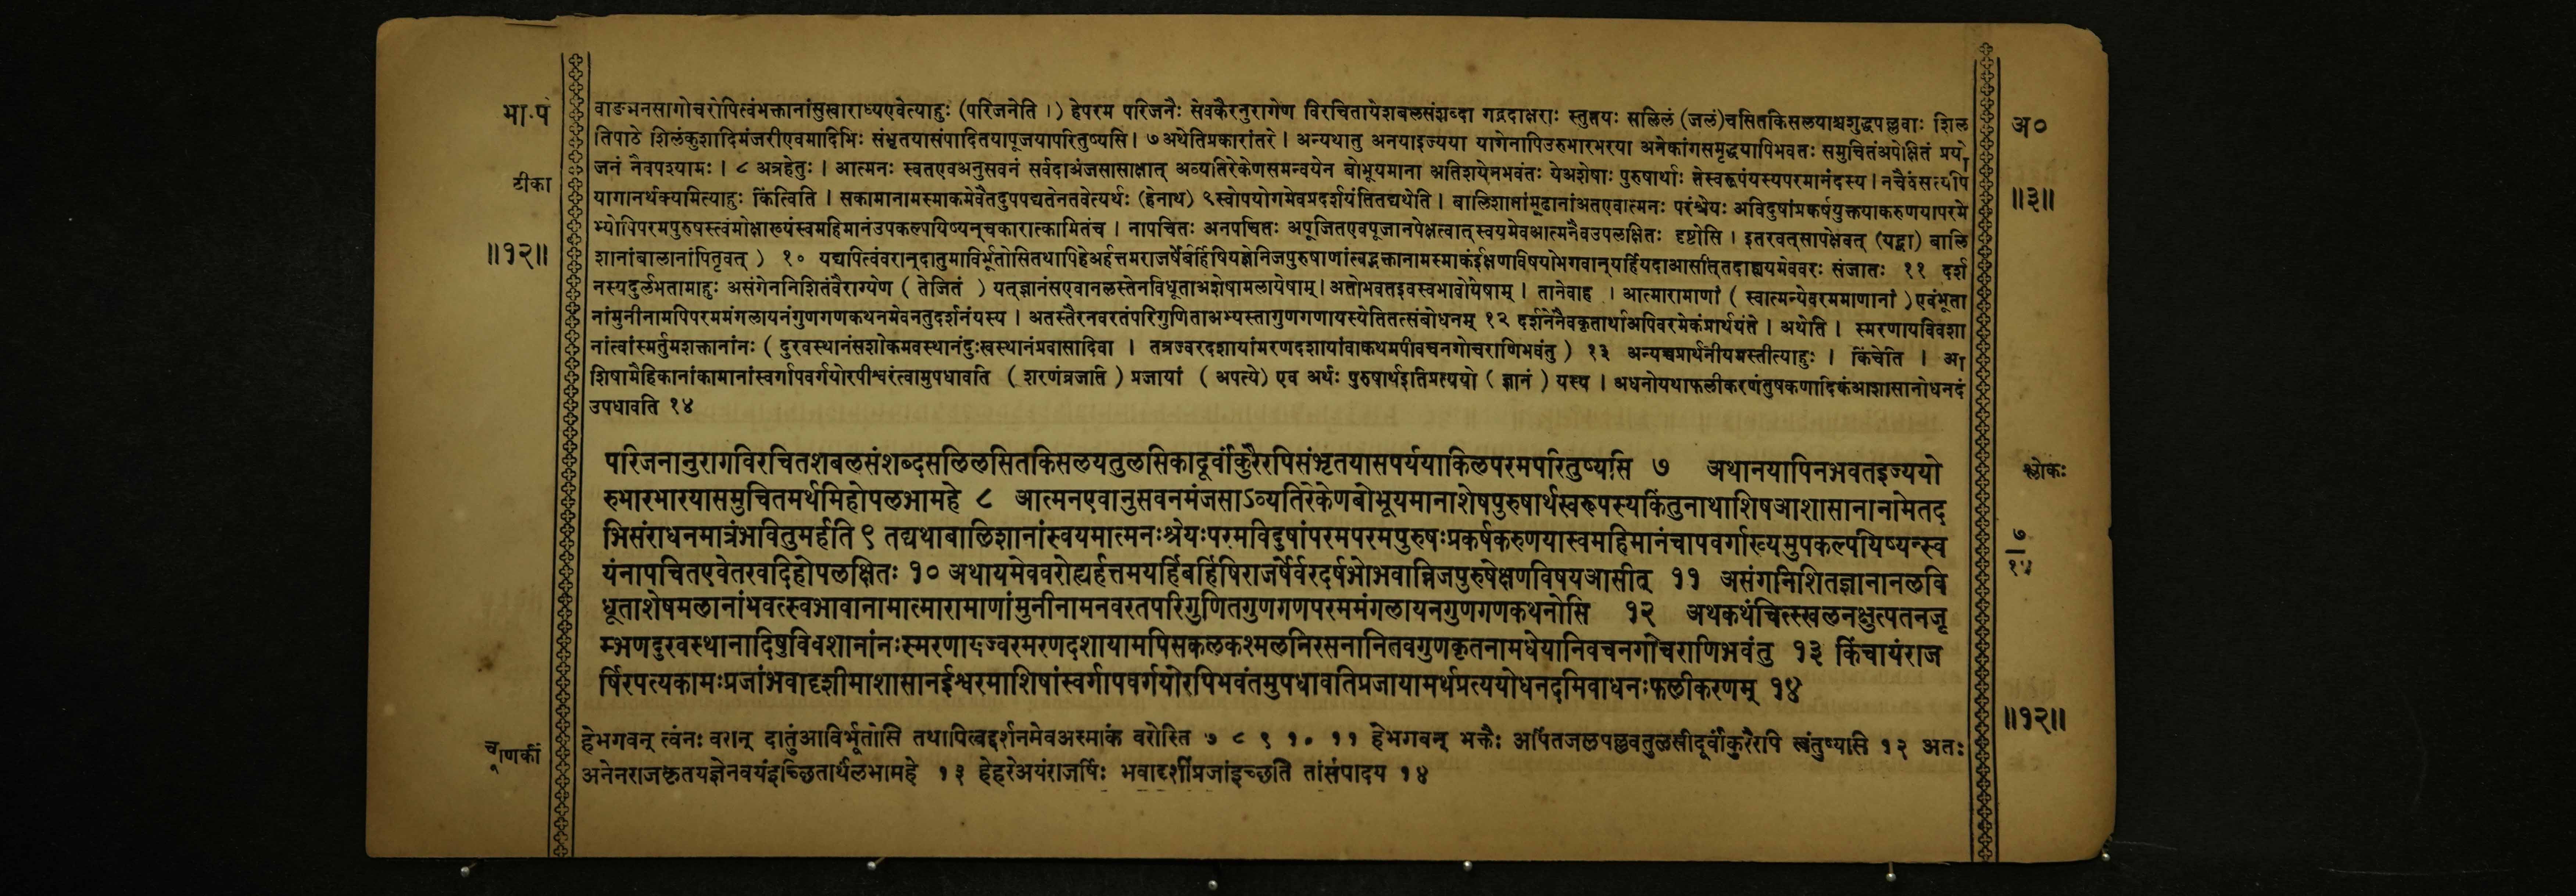 भा.पं
वाङ्मनसागोचरोपित्वंभक्तानांसुखाराध्यएवेत्याहुः (परिजनेति ।) हेपरम परिजनैः सेवकैरनुरागेण विरचितायेशबलसंशब्दा गद्गदाक्षराः स्तुतयः सलिलं (जलं) चसितकिसलयाश्चशुद्धपल्लवाः शिल
अ०
तिपाठे शिलंकुशादिमंजरीएवमादिभिः संभृतयासंपादितयापूजयापरितुष्यसि । ७ अथेतिप्रकारांतरे । अन्यथातु अनयाइज्यया यागेनापिउरुभारभरया अनेकांगसमृद्धयापिभवतः समुचितंअपेक्षितं प्रयो
टीका
जनं नैवपश्यामः । ८ अत्रहेतुः । आत्मनः स्वतएवअनुसवनं सर्वदाअंजसासाक्षात् अव्यतिरेकेणसमन्वयेन बोभूयमाना अतिशयेनभवंतः येअशेषाः पुरुषार्थाः तेस्वरूपंयस्यपरमानंदस्य । नचैवंसत्यपि
॥३॥
यागानर्थक्यमित्याहुः किंत्विति । सकामानामस्माकमेवैतदुपपद्यतेनतवेत्यर्थः (हेनाथ) ९ स्वोपयोगमेवप्रदर्शयंतितद्यथेति । बालिशानांमूढानांअतएवात्मनः परंश्रेयः अविदुषांप्रकर्षयुक्तयाकरुणयापरमे
॥१२॥
भ्योपिपरमपुरुषस्त्वंमोक्षाख्यंस्वमहिमानंउपकल्पयिष्यन्चकारात्कामितंच । नापचितः अनपचितः अपूजितएवपूजानपेक्षत्वात् स्वयमेवआत्मनैवउपलक्षितः दृष्टोसि । इतरवत्सापेक्षवत् (यद्वा) बालि
शानांबालानांपितृवत् ) १० यद्यपित्वंवरान्दातुमाविर्भूतोसितथापिहेअर्हत्तमराजर्षेर्बर्हिषियज्ञेनिजपुरुषाणांत्वद्भक्तानामस्माकंईक्षणविषयोभगवान्यर्हियदाआसीत्तदाह्ययमेववरः संजातः ११ दर्श
नस्यदुर्लभतामाहुः असंगेननिशितंवैराग्येण ( तेजितं ) यत्ज्ञानंसएवानलस्तेनविधूताअशेषामलायेषाम् । अतोभवतइवस्वभावोयेषाम् । तानेवाह । आत्मारामाणां ( स्वात्मन्येवरममाणानां ) एवंभूता
नांमुनीनामपिपरममंगलायनंगुणगणकथनमेवनतुदर्शनंयस्य । अतस्तैरनवरतंपरिगुणिताअभ्यस्तागुणगणायस्येतितत्संबोधनम् १२ दर्शनेनैवकृतार्थाअपिवरमेकंप्रार्थयंते । अथेति । स्मरणायविवशा
नांत्वांस्मर्तुमशक्तानांनः ( दुरवस्थानंसशोकमवस्थानंदुःखस्थानंप्रवासादिवा । तत्रज्वरदशायांमरणदशायांवाकथमपीवचनगोचराणिभवंतु ) १३ अन्यच्चप्रार्थनीयमस्तीत्याहुः । किंचेति । आ
शिषामैहिकानांकामानांस्वर्गापवर्गयोरपीश्वरंत्वामुपधावति ( शरणंव्रजति ) प्रजायां ( अपत्ये) एव अर्थः पुरुषार्थइतिप्रत्ययो ( ज्ञानं ) यस्य । अधनोयथाफलीकरणंतुषकणादिकंआशासानोधनदं
उपधावति १४
परिजनानुरागविरचितशबलसंशब्दसलिलसितकिसलयतुलसिकादूर्वांकुरैरपिसंभृतयासपर्ययाकिलपरमपरितुष्यसि ७ अथानयापिनभवतइज्ययो
श्लोकः
रुभारभारयासमुचितमर्थमिहोपलभामहे ८ आत्मनएवानुसवनमंजसाऽव्यतिरेकेणबोभूयमानाशेषपुरुषार्थस्वरूपस्यकिंतुनाथाशिषआशासानानामेतद
भिसंराधनमात्रंभवितुमर्हति ९ तद्यथाबालिशानांस्वयमात्मनःश्रेयःपरमविदुषांपरमपरमपुरुषःप्रकर्षकरुणयास्वमहिमानंचापवर्गाख्यमुपकल्पयिष्यन्स्व
७
१४
यंनापचितएवेतरवदिहोपलक्षितः १० अथायमेववरोह्यर्हत्तमयर्हिबर्हिषिराजर्षेर्वरदर्षभोभवान्निजपुरुषेक्षणविषयआसीत् ११ असंगनिशितज्ञानानलवि
धूताशेषमलानांभवत्स्वभावानामात्मारामाणांमुनीनामनवरतपरिगुणितगुणगणपरममंगलायनगुणगणकथनोसि १२ अथकथंचित्स्खलनक्षुत्पतनजृ
म्भणदुरवस्थानादिषुविवशानांनःस्मरणायज्वरमरणदशायामपिसकलकश्मलनिरसनानितवगुणकृतनामधेयानिवचनगोचराणिभवंतु १३ किंचायंराज
र्षिरपत्यकामःप्रजांभवादृशीमाशासानईश्वरमाशिषांस्वर्गापवर्गयोरपिभवंतमुपधावतिप्रजायामर्थप्रत्ययोधनदमिवाधनःफलीकरणम् १४
॥१२॥
चूर्णिका
हेभगवन् त्वंनः वरान् दातुंआविर्भूतोसि तथापित्वद्दर्शनमेवअस्माकं वरोस्ति ७ ८ ९ १० ११ हेभगवन् भक्तैः अर्पितजलपल्लवतुलसीदूर्वांकुरैरपि त्वंतुष्यसि १२ अतः
अनेनराजकृतयज्ञेनवयंइच्छितार्थंलभामहे १३ हेहरेअयंराजर्षिः भवादृशींप्रजांइच्छति तांसंपादय १४